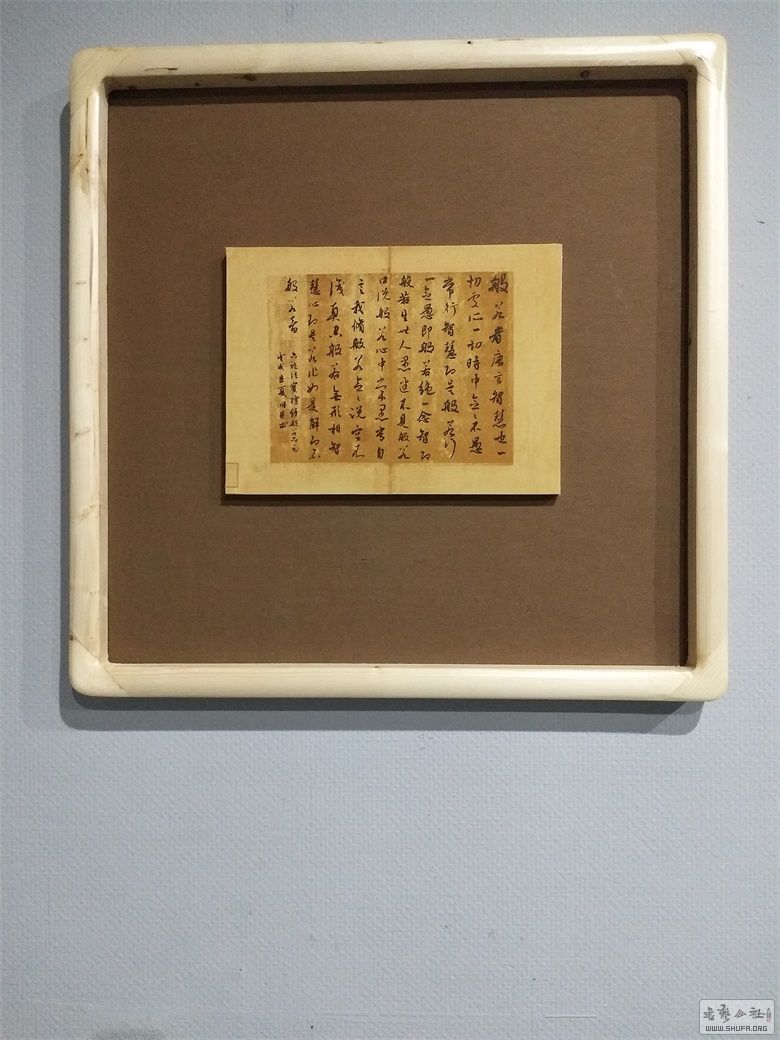 般若者唐言智慧也一
切處所一切時中念々不愚
常行智慧即是般若行
一念愚即般若絕一念智即
般若生世人愚迷不見般若
口說般若心中常愚常自
言我修般若念々說空不
識真空般若無形相智
慧心即是若作如是解即名
般若智
六祖法寶壇經般若品句
戊戌立夏
書藝公社
WWW.SHUFA.ORG